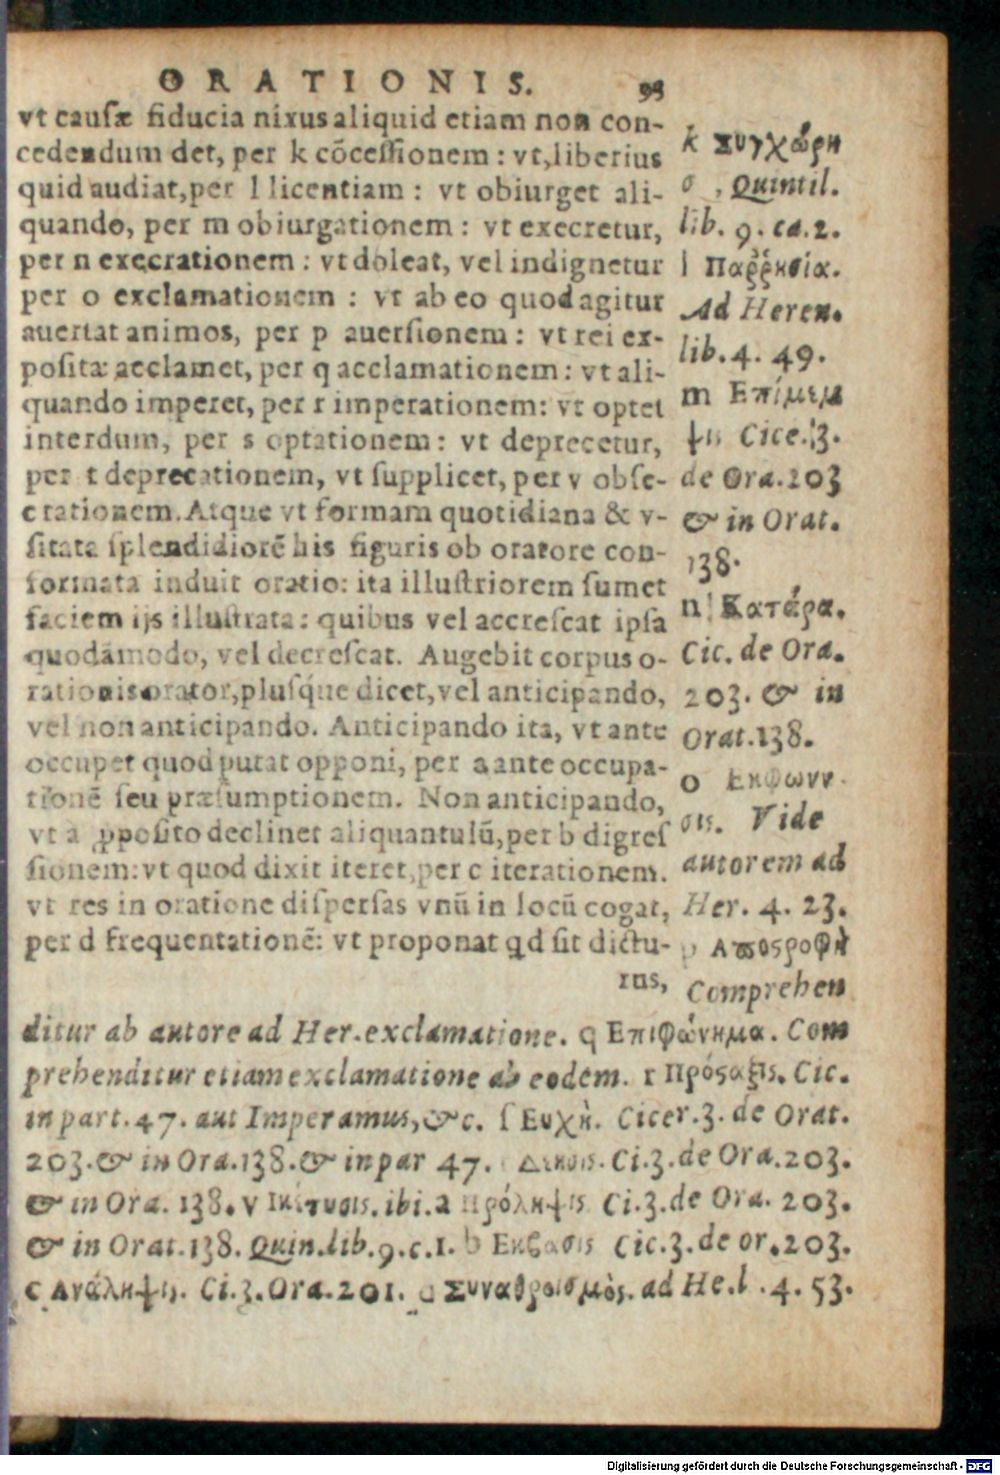 ORATIONIS. 95
vt causæ fiducia nixus aliquid etiam non con-
cedendum det, per k cōcessionem : vt, liberius
quid audiat, per l licentiam : vt obiurget ali-
quando, per m obiurgationem : vt execretur,
per n execrationem : vt doleat, vel indignetur
per o exclamationem : vt ab eo quod agitur
auertat animos, per p auersionem : vt rei ex-
positæ acclamet, per q acclamationem : vt ali-
quando imperet, per r imperationem: vt optet
interdum, per s optationem : vt deprecetur,
per t deprecationem, vt supplicet, per v obse-
crationem. Atque vt formam quotidiana & v-
sitata splendidiorē his figuris ob oratore con-
formata induit oratio: ita illustriorem sumet
faciem ijs illustrata: quibus vel accrescat ipsa
quodāmodo, vel decrescat. Augebit corpus o-
rationis orator, plusq́ue dicet, vel anticipando,
vel non anticipando. Anticipando ita, vt ante
occupet quod putat opponi, per a ante occupa-
tionē seu præsumptionem. Non anticipando,
vt a ꝓposito declinet aliquantulū, per b digres
sionem: vt quod dixit iteret, per c iterationem.
vt res in oratione dispersas vnū in locū cogat,
per d frequentationē: vt proponat qd sit dictu-
rus,
k Συγχώρη
σ , Quintil.
lib. 9. ca. 2.
l Παῤῥησία.
Ad Heren.
lib. 4. 49.
m Επίμεμ
ψις Cice. 3.
de Ora. 203
& in Orat.
138.
n Κατάρα.
Cic. de Ora.
203. & in
Orat. 138.
o Εκφωνη
σις. Vide
autorem ad
Her. 4. 23.
p Αποϛροφὴ
Comprehen
ditur ab autore ad Her. exclamatione. q Επιφώνημα. Com
prehenditur etiam exclamatione ab eodem. r Πρόσαξις. Cic.
in part. 47. aut Imperamus, &c. ſ Ευχὴ. Cicer. 3. de Orat.
203. & in Ora. 138. & in par 47. Δεησις. Ci. 3. de Ora. 203.
& in Ora. 138. v Ικέτυσις. ibi. a Πρόληψις Ci. 3. de Ora. 203.
& in Orat. 138. Quin. lib. 9. c. 1. b Εκβασις Cic. 3. de or. 203.
c Ανάληψις. Ci. 3. Ora. 201. d Συναθροισμὸς. ad He. l . 4. 53.
Digitalisierung gefördert durch die Deutsche Forschungsgemeinschaft - DFG